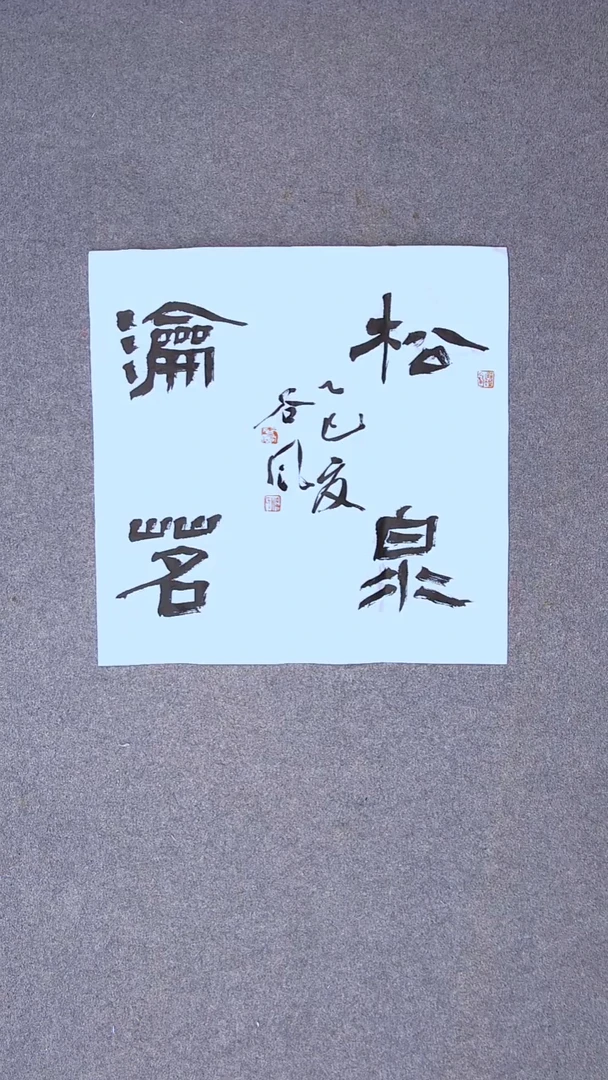 松泉
瀹茗
乙巳夏
谷风